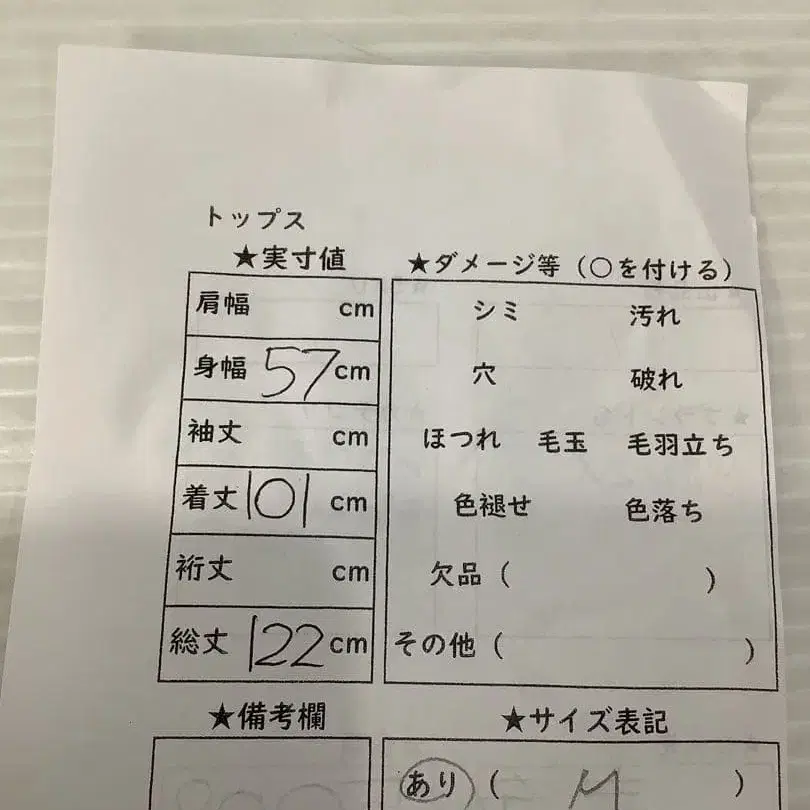 トップス
★実寸値
肩幅 cm
身幅 57 cm
袖丈 cm
着丈 101 cm
裄丈 cm
総丈 122 cm
★ダメージ等（○を付ける）
シミ 汚れ
穴 破れ
ほつれ 毛玉 毛羽立ち
色褪せ 色落ち
欠品（ ）
その他（ ）
★備考欄
★サイズ表記
あり（ M ）